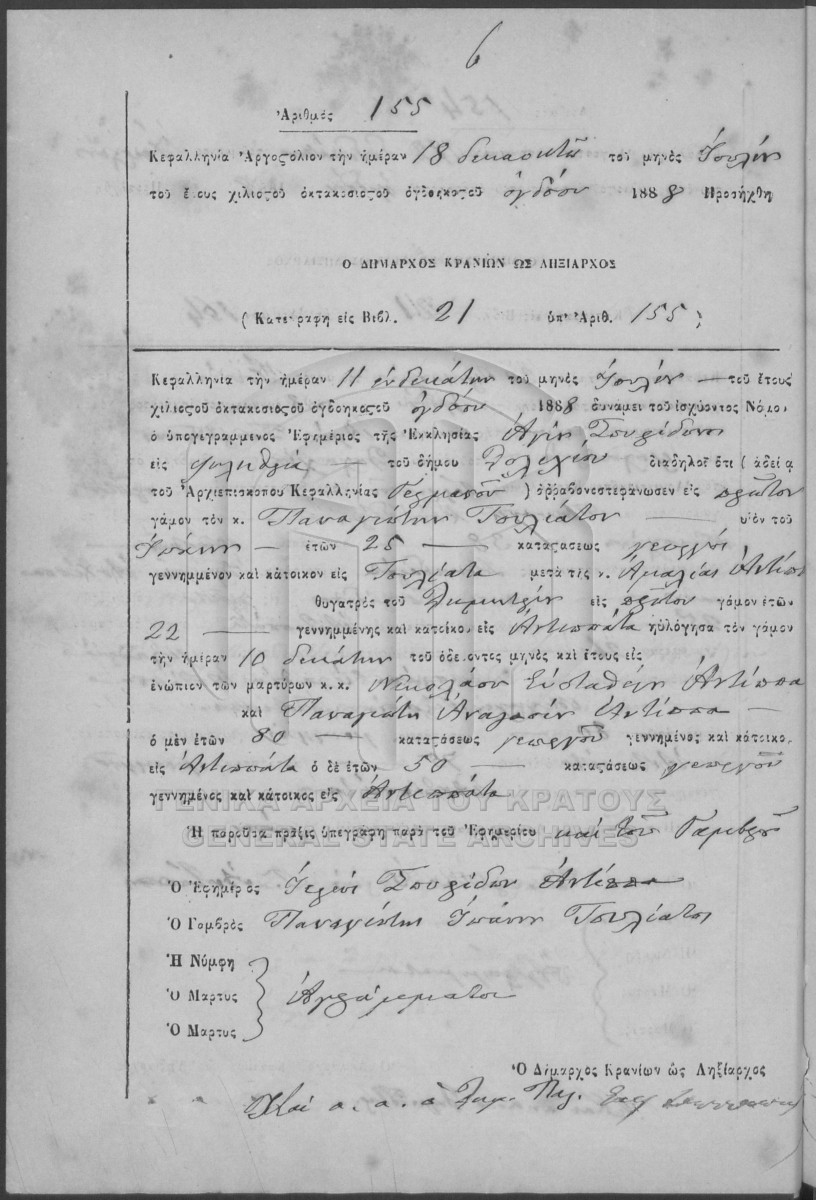 6
Ἀριθμὸς 155
Κεφαλληνία Ἀργοςόλιον τὴν ἡμέραν 18 δεκαοκτὼ τοῦ μηνὸς Ἰουλίου
τοῦ ἔτους χιλιοςοῦ ὀκτακοσιοςοῦ ὀγδοηκοςοῦ ὀγδόου 1888 Προσήχθη
Ο ΔΗΜΑΡΧΟΣ ΚΡΑΝΙΩΝ ΩΣ ΛΗΞΙΑΡΧΟΣ
(Κατεγράφη εἰς Βιβλ. 21 ὑπ' Ἀριθ. 155)
Κεφαλληνία τὴν ἡμέραν 11 ἑνδεκάτην τοῦ μηνὸς Ἰουλίου — τοῦ ἔτους
χιλιοςοῦ ὀκτακοσιοςοῦ ὀγδοηκοςοῦ ὀγδόου 1888 δυνάμει τοῦ ἰσχύοντος Νόμου
ὁ ὑπογεγραμμένος Ἐφημέριος τῆς Ἐκκλησίας Ἁγίου Σπυρίδωνος
εἰς — τοῦ δήμου διαδηλοῖ ὅτι (ἀδείᾳ
τοῦ Ἀρχιεπισκόπου Κεφαλληνίας Γερμανοῦ) ἀρραβονεστεφάνωσεν εἰς πρῶτον
γάμον τὸν κ. Παναγιώτην Τσουλιάτον — υἱὸν τοῦ
Ἰωάννου — ἐτῶν 25 — καταςάσεως γεωργοῦ
γεννημμένον καὶ κάτοικον εἰς Τσουλιάτα μετὰ τῆς κ. Ἀμαλίας Ἀντίππα
θυγατρὸς τοῦ Δημητρίου εἰς πρῶτον γάμον ἐτῶν
22 — γεννημμένης καὶ κατοίκου εἰς Ἀντιππάτα ηὐλόγησα τὸν γάμον
τὴν ἡμέραν 10 δεκάτην τοῦ ὁδεύοντος μηνὸς καὶ ἔτους εἰς
ἐνώπιον τῶν μαρτύρων κ. κ. Νικολάου Εὐσταθίου Ἀντίππα
καὶ Παναγιώτη Ἀντίππα —
ὁ μὲν ἐτῶν 80 — καταςάσεως γεωργοῦ γεννημένος καὶ κάτοικος
εἰς Ἀντιππάτα ὁ δὲ ἐτῶν 50 — καταςάσεως γεωργοῦ
γεννημένος καὶ κάτοικος εἰς Ἀντιππάτα
ΓΕΝΙΚΑ ΑΡΧΕΙΑ ΤΟΥ ΚΡΑΤΟΥΣ
Ἡ παροῦσα πρᾶξις ὑπεγράφη παρὰ τοῦ Ἐφημερίου καὶ τοῦ Γαμβροῦ
GENERAL STATE ARCHIVES
Ὁ Ἐφημέριος Ἱερεὺς Σπυρίδων Ἀντίππα
Ὁ Γαμβρὸς Παναγιώτης Ἰωάννου Τσουλιάτος
Ἡ Νύμφη
Ὁ Μάρτυς Ἀγράμματοι
Ὁ Μάρτυς
Ὁ Δήμαρχος Κρανίων ὡς Ληξίαρχος